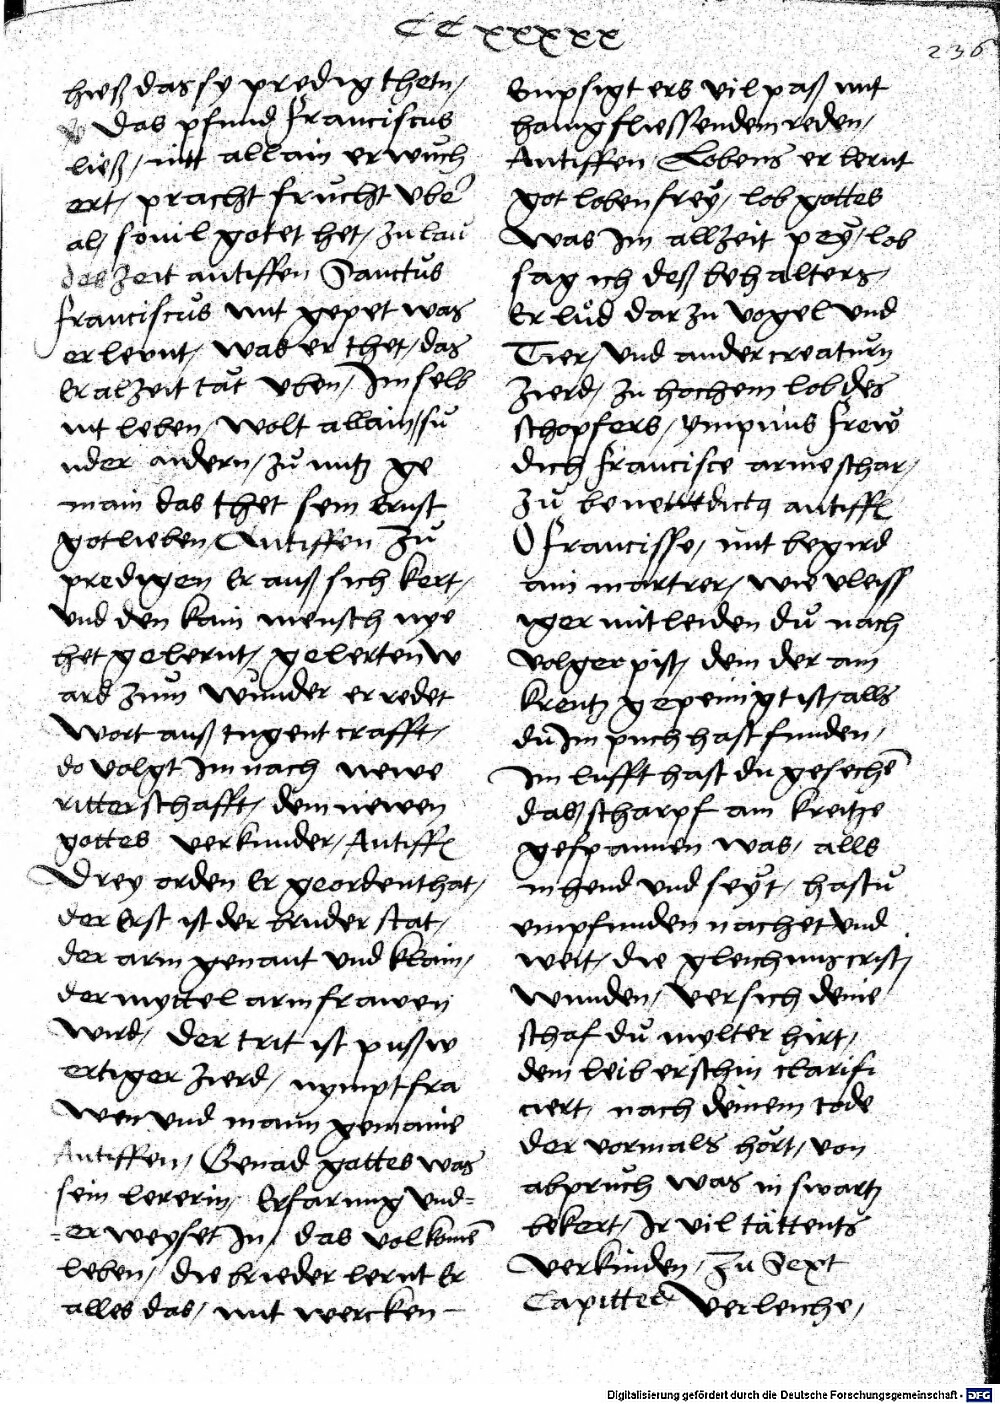 CCxxxxx
236
hieß das sy predig theten /
Das pfund Franciscus
ließ / nitt allain er wuch
ert / pracht frucht vber
al / souil gotet het / zu lau
des Zeit antiffen Sanctus
franciscus mit gepet was
er lernt / was er thet / das
Er alzeit tät vben / Im selb
nit leben / wolt allain / su
nder andern / zu nutz ge
main das thet sein ernst
gotlieben / Antiffen Zu
predigen Er auß sich kert /
vnd den kain mensch nye
het gelernt / gelerten w
ard zum wunder er redet
Wort auß tugent crafft /
do volgt Im nach newe
ritterschafft / dem newen
gottes verkunder / Antiff
Drey orden Er geordent hat /
der Erst ist der bruder stat /
der arm genant vnd klain /
der myttel arm frawen
wird / der trit ist pußw
ertiger zierd / nympt fra
wen vnd mann gemaine
Antiffen / Genad gottes was
sein lererin / Erfarung vnd=
=er weyset In / das volkomen
leben / die brieder lernt Er
alles das / mit wercken –
Empsigt ers vil paß mit
hanigfliessendem reden /
Antiffen / Lobens er lernt
got loben frey / lob gottes
Was Im allzeit pey / lob
sag ich deß behalters /
Er lud darzu vogel vnd
Tier / vnd ander creaturn
zierd / zu hochem lob des
schopfers / ympnus frew
dich francisce arme schar /
Zu benettedictq antiff
O francisse / mit begird
ain martrer / wie vleiss
iger mitleiden du nach
volger pist / dem der am
kreutz gepeinigt ist / alls
du Im puch hast funden /
im lufft hast du gesechen
das / scharpf am kreitze
gespannen was / alls
in hend vnd seyt / hastu
empfunden nachet vnd
weit / die gleichnus crist /
wunden / versich deine
schaf du mylter hirt /
dem leib erschin clarifi
ciert / nach deinem tode
der vormals hört / von
abpruch was in swartz
bekert / Ir vil tättents
Verkinden / Zu Sext
Capittel Verleiche /
Digitalisierung gefördert durch die Deutsche Forschungsgemeinschaft - DFG